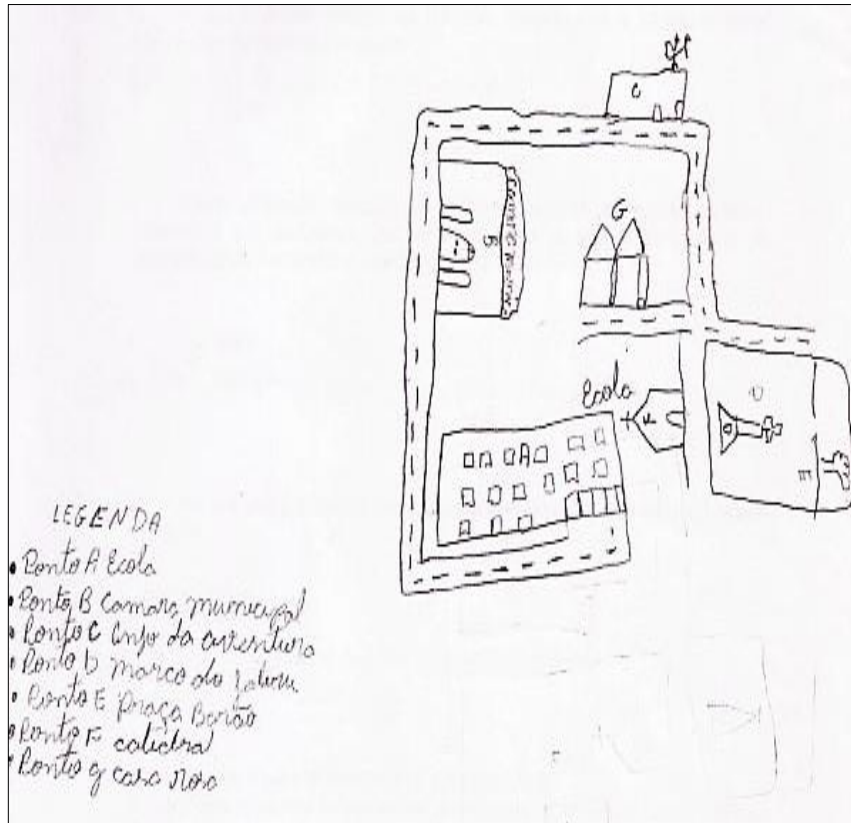 C
G
B
Ecola
F
D
E
A
LEGENDA
• Ponto A Ecola
• Ponto B Camara municipal
• Ponto C Anjo da aventura
• Ponto D marco do
• Ponto E Praça Barão
• Ponto F catidral
• Ponto g casa rosa